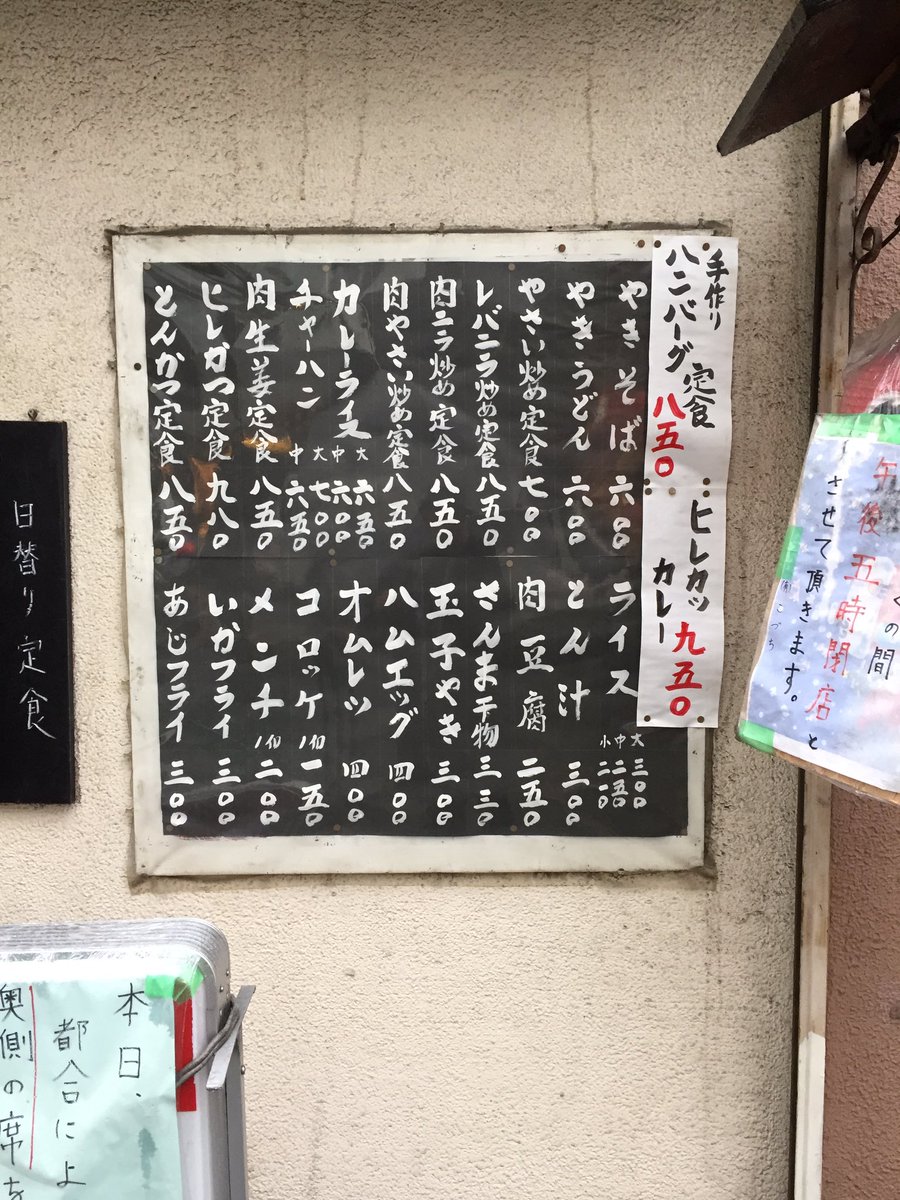 くの間
午後五時閉店と
させて頂きます。
(有)こづち
手作り
ハンバーグ定食 八五〇
ヒレカツ
カレー 九五〇
やきそば 六〇〇
やきうどん 六〇〇
やさい炒め定食 七〇〇
レバニラ炒め定食 八五〇
肉ニラ炒め定食 八五〇
肉やさい炒め定食 八五〇
カレーライス 大 六五〇 中 六〇〇
チャーハン 大 七〇〇 中 六五〇
肉生姜定食 八五〇
ヒレかつ定食 九八〇
とんかつ定食 八五〇
ライス 大 三〇〇 中 二五〇 小 二一〇
とん汁 三〇〇
肉豆腐 二五〇
さんま干物 三三〇
玉子やき 三〇〇
ハムエッグ 四〇〇
オムレツ 四〇〇
コロッケ 1個 一五〇
メンチ 1個 二〇〇
いかフライ 三〇〇
あじフライ 三〇〇
日替り定食
本日、
都合によ
奥側の席を